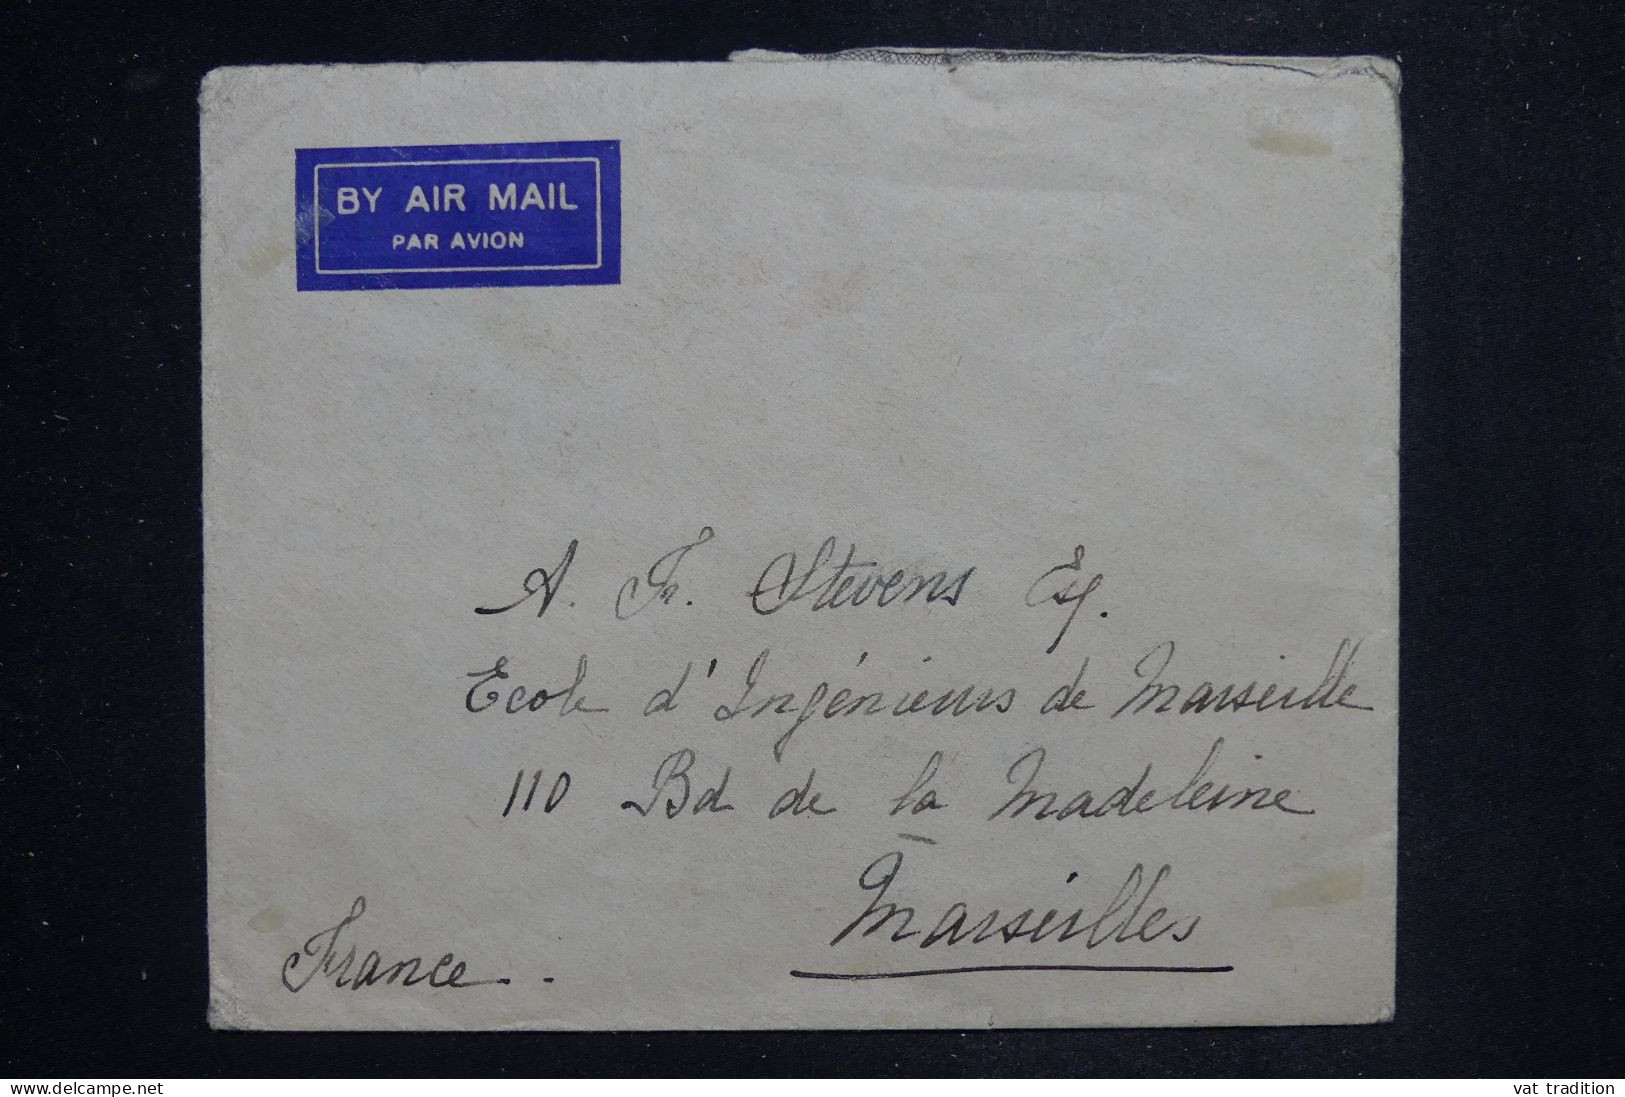 BY AIR MAIL
PAR AVION
A. Fr. Stevens Esq.
Ecole d'Ingénieurs de Marseille
110 Bd de la Madeleine
Marseilles
France..
www.delcampe.net
vat tradition